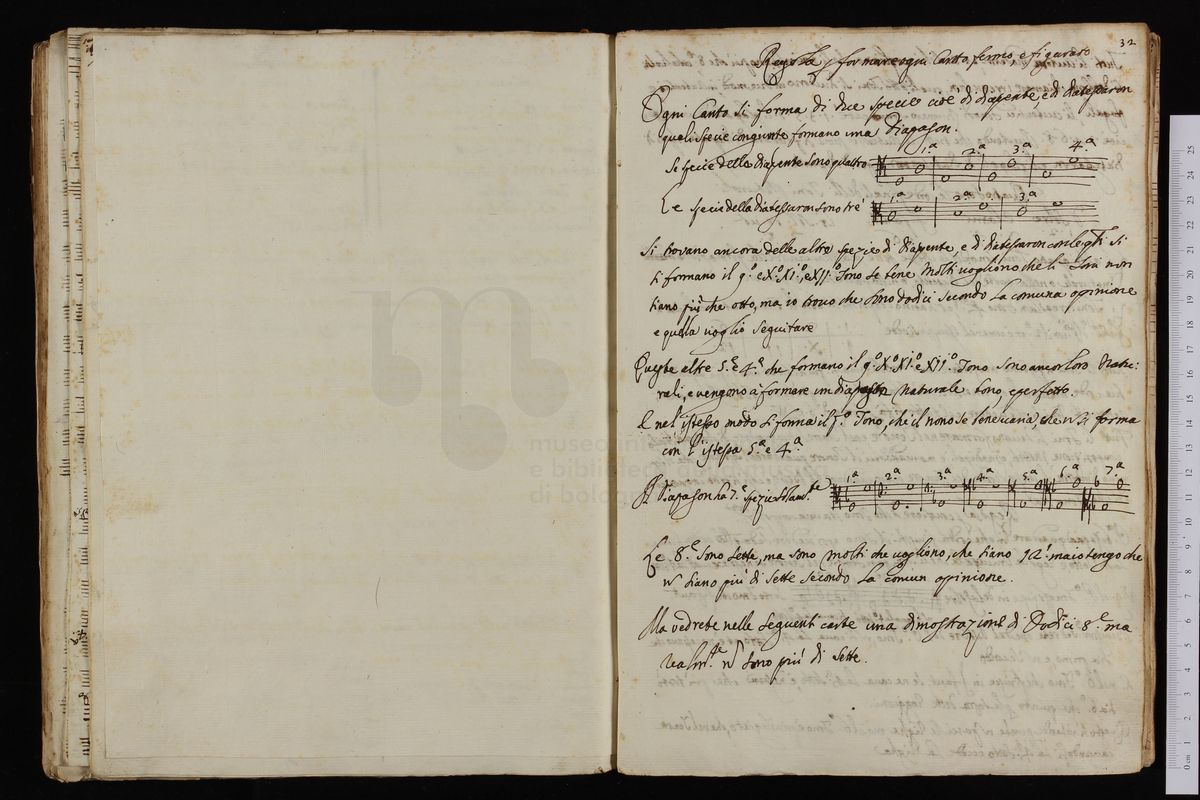 32
Regole p formare ogni Canto fermo, e figurato
Ogni Canto si forma di due specie cioè di diapente, e di diatessaron
quali specie congiunte formano una diapason.
Le specie della diapente sono quattro 1.ª 2.ª 3.ª 4.ª
Le specie della diatessaron sono tre 1.ª 2.ª 3.ª
Si trovano ancora delle altre spezie di diapente e di diatessaron con le qli si
si formano il 9.º e X.º XI.º e XII.º Tono se bene molti vogliono che li Toni non
siano più che otto, ma io trovo che sono dodici secondo la comuna opinione
e quella voglio seguitare
Queste altre 5.e 4.e che formano il 9.º X.º XI.º e XII.º Tono sono ancor loro Natu:
rali, e vengono a formare un diapason naturale bono, e perfetto.
E nel istesso modo si forma il Tono, che il nono se bene varia, che si forma
con l'istessa 5.ª e 4.ª
Il Diapason ha 7. spezie 1.ª 2.ª 3.ª 4.ª 5.ª 6.ª 7.ª
Le 8.e sono sette, ma sono molti che vogliono, che siano 12. ma io tengo che
nō siano più di sette secondo la comun opinione.
Ma vedrete nelle seguenti carte una dimostrazione di Dodici 8.e ma
realm.te nō sono più di sette.
museo inte
e bibliotec
di bolog